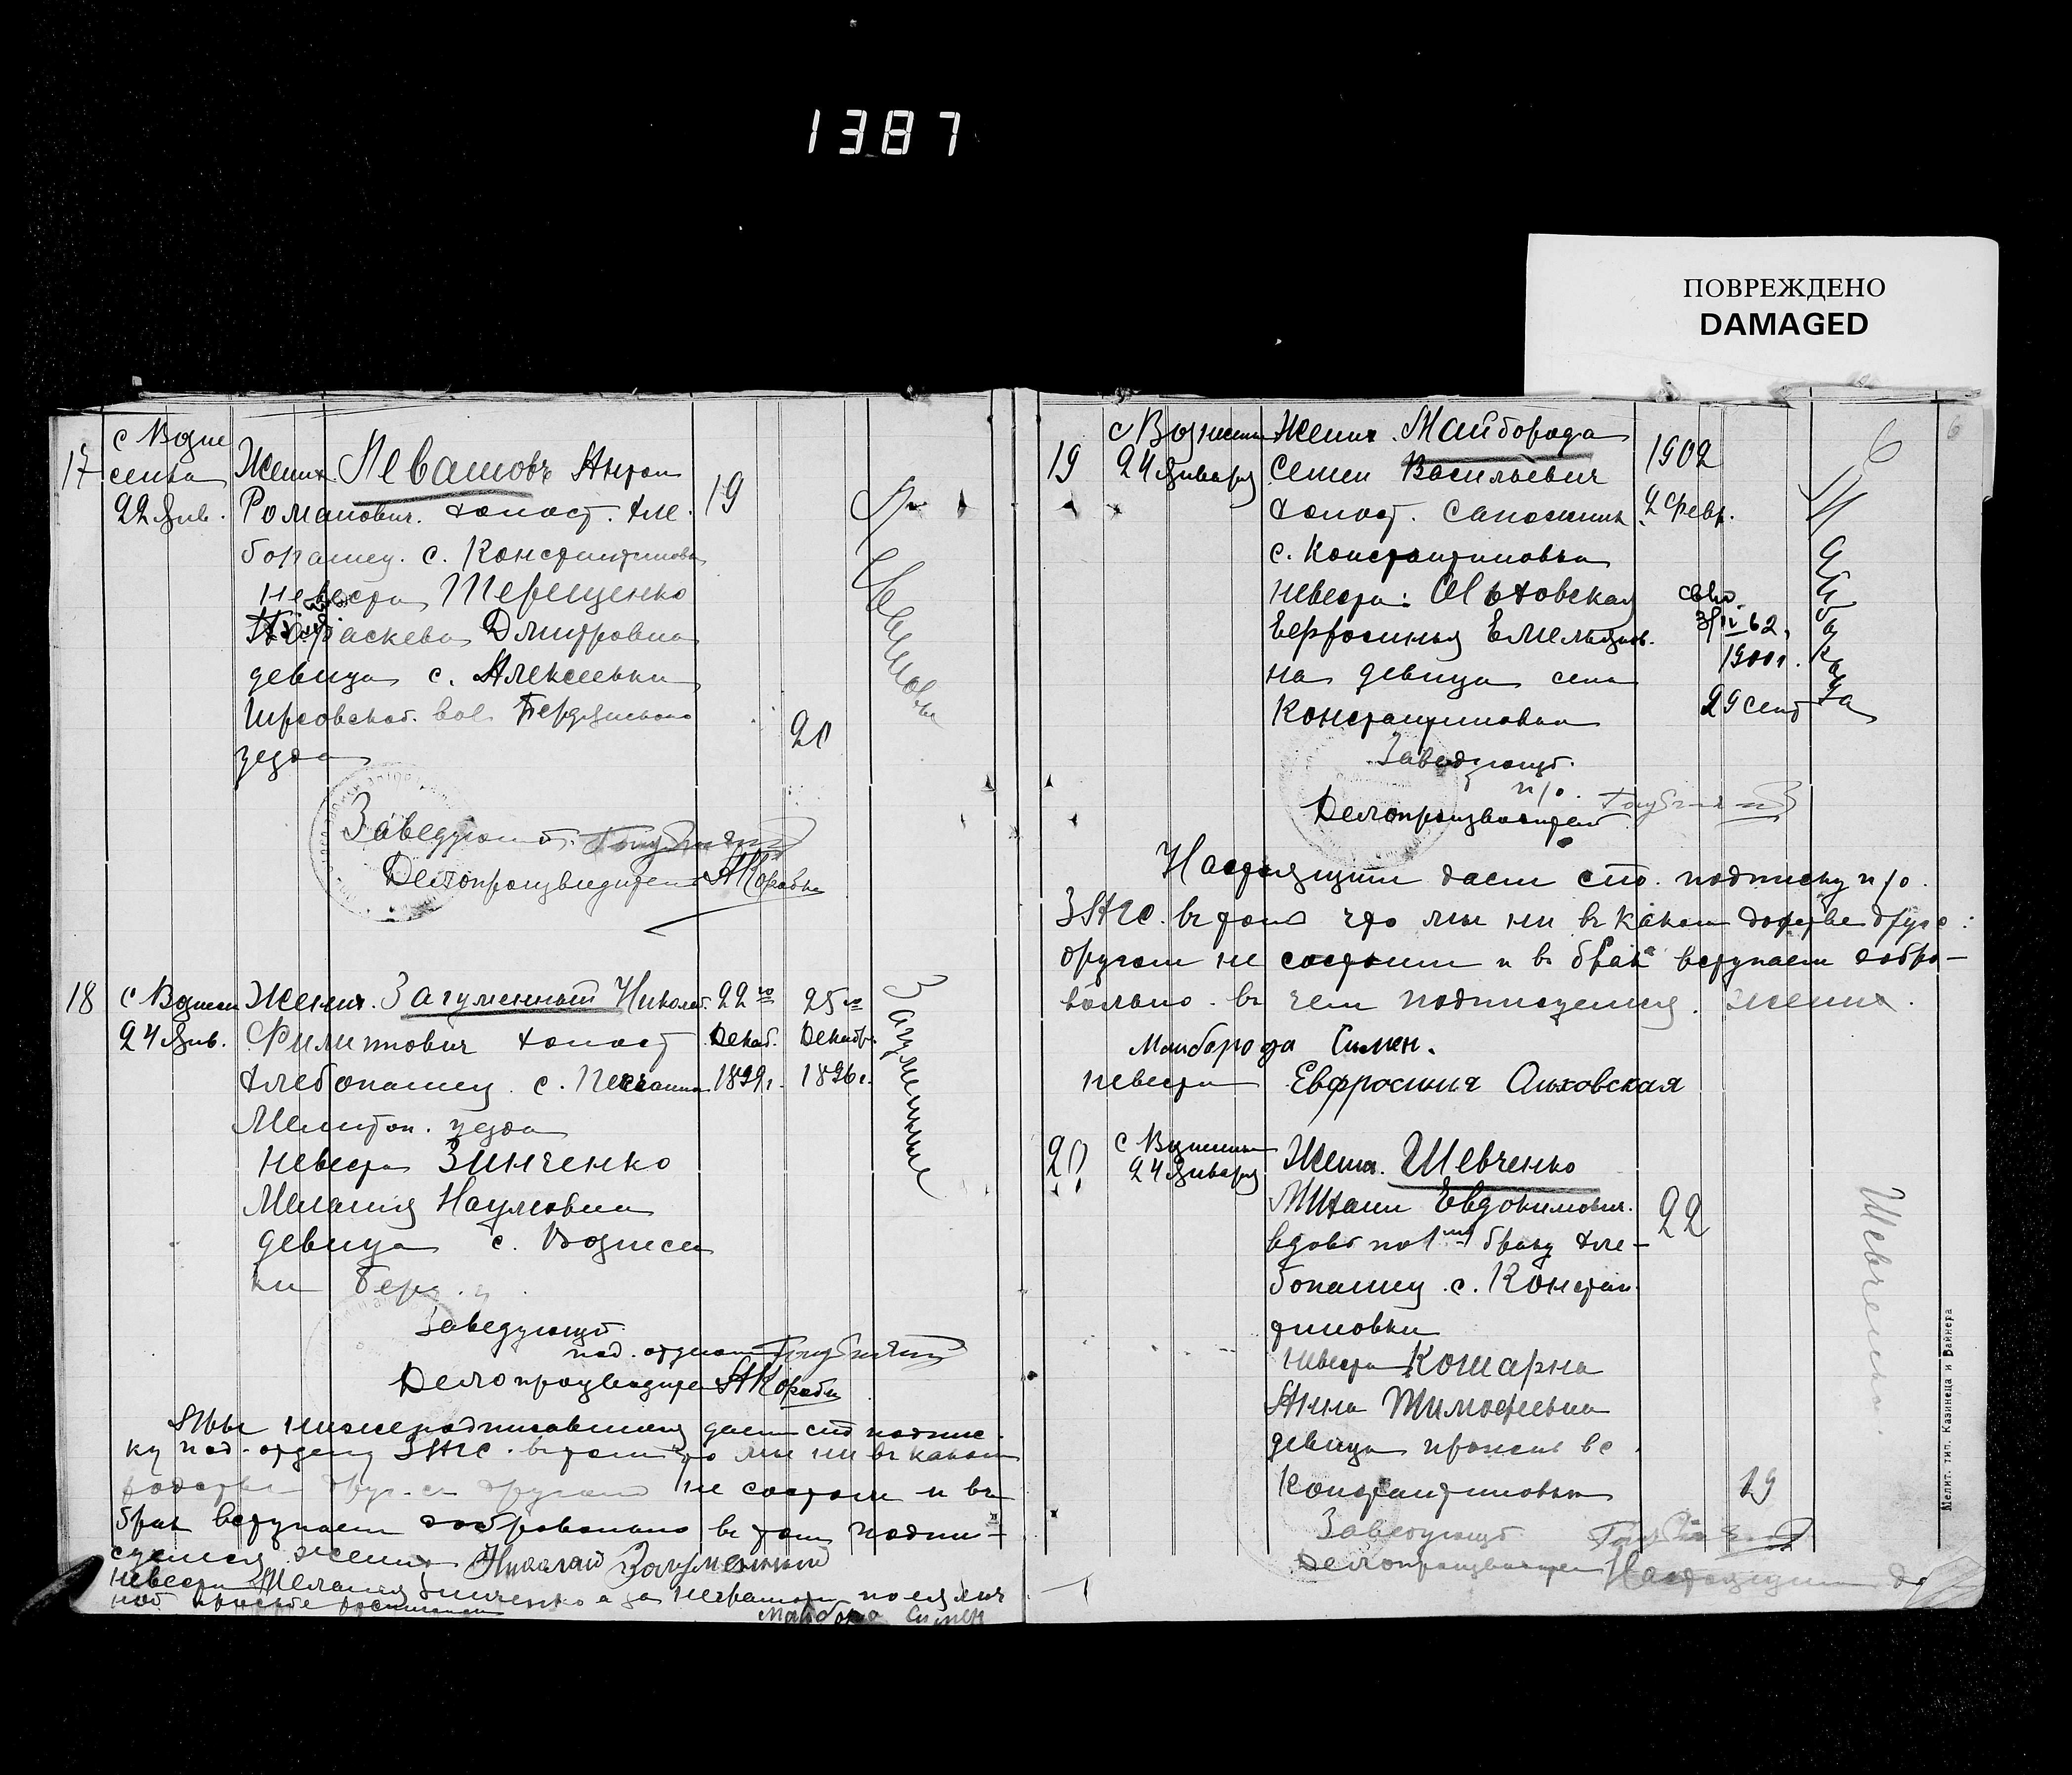 1387
ПОВРЕЖДЕНО
DAMAGED
17
с Возне
сенка
22 Янв.
Жених Левашовъ Антон
Романович. холост. хле
бопашец. с. Константиновка
невеста Терещенко
Параскева Дмитровна
девица с. Алексеевки
вол. Бердянского
уезда
19
20
Левашовы
Заведующий
Делопроизводитель АКоробка
18
с Вознесен
24 Янв.
Жених. Загуменный Николай
Филиппович холост
хлебопашец с. Песчанка
Мелитоп. уезда
невеста Зинченко
Мелания Наумовна
девица с. Вознесен
ки Берд. у.
22го
Декаб.
1899г.
25го
Декабр.
1896г.
Загуменные
Заведующий
под. отделом
Делопроизводитель АКоробка
Мы нижеподписавшиеся даем сию подпис
ку под. отделу ЗАГС. в том что мы ни в каком
родстве друг с другом не состоим и в
брак вступаем добровольно в том подпи-
суемся жених Николай Загуменный
невеста Мелания Зинченко а за неграмотн. по ея лич
ной просьбе росписался
Майборода Симен
6
19
с Вознесенка
24 Января
Жених. Майборода
Семен Васильевич
холост. Сапожник
с. Константиновка
невеста: Ольховская
Ефросинья Емельянов.
на девица села
Константиновки
1902
2 Февр.
62.
1900г.
29 сент
Майборода
Заведующий
п/о.
Делопроизводитель
Настоящим даем сию. подписку п/о.
ЗАГС. в том что мы ни в каком родстве друг с
другом не состоим и в брак вступаем добро-
вольно. в чем подписуемся. жених.
Майборода Симен.
невеста Евфросиния Алховская
20
с Вознесенка
24 Января
Жених. Шевченко
Михаил Евдокимович.
вдов по 1му браку хле-
бопашец с. Констан
тиновки
невеста Кошарна
Анна Тимофеевна
девица прожив в с.
Константиновки
22
19
Шевченко.
Заведующий
Делопроизводитель Настоящим да
Мелит. тип. Казинеца и Вайнера